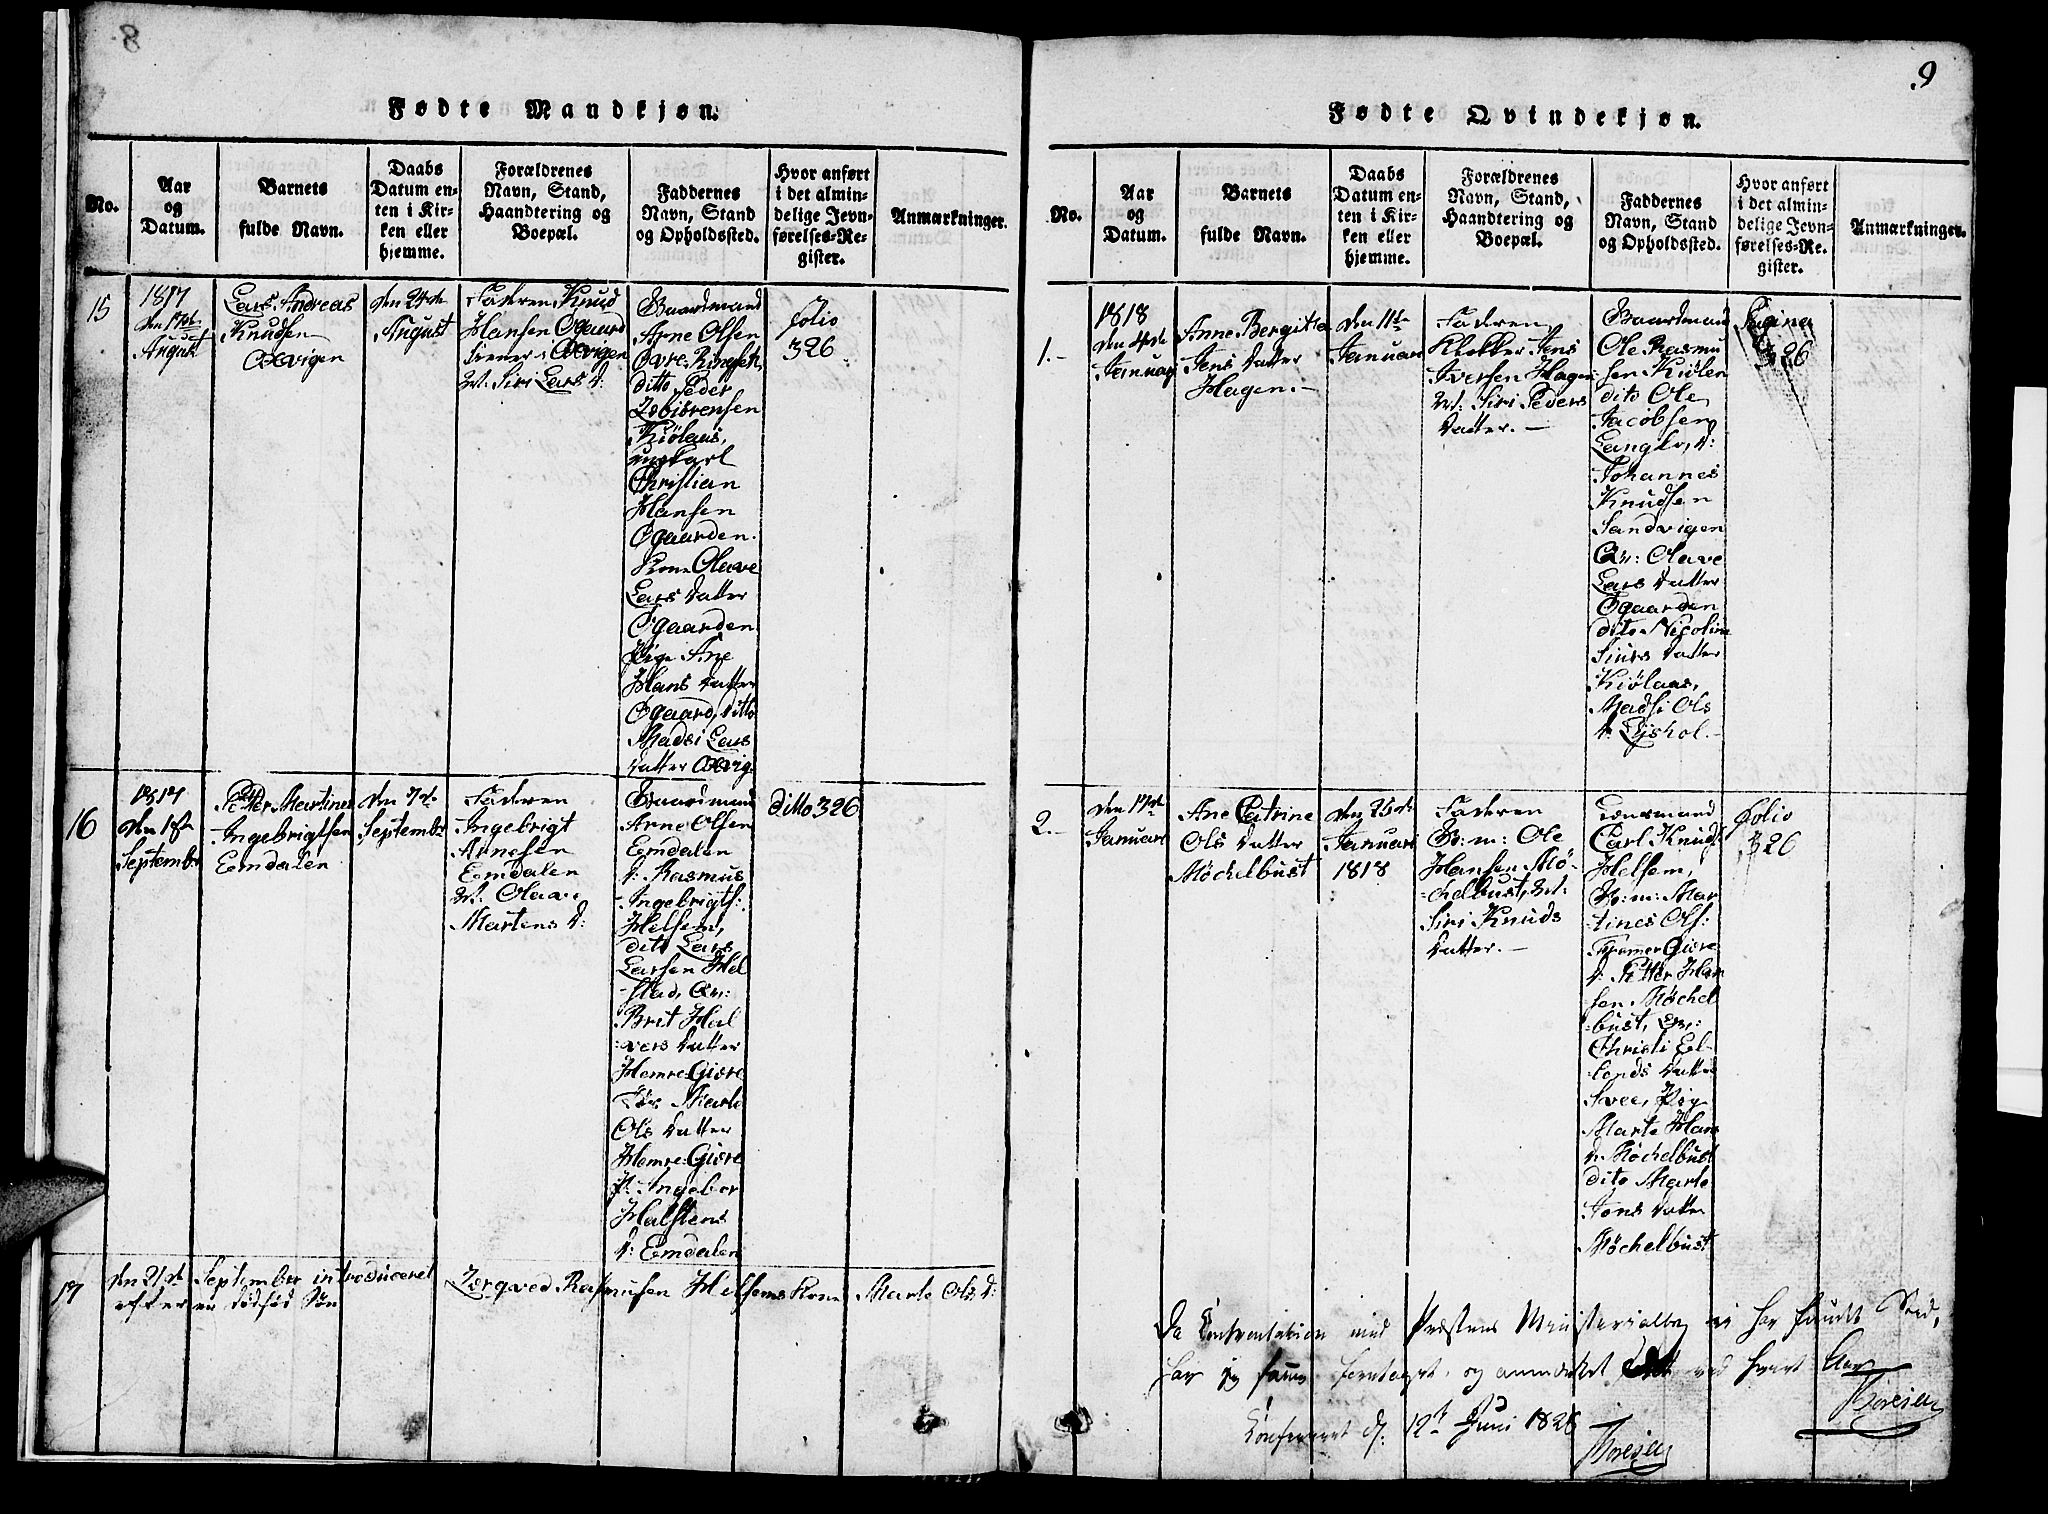 8.
Fødte Mandkjøn.
No.
Aar
og
Datum.
Barnets
fulde Navn.
Daabs
Datum en-
ten i Kir-
ken eller
hjemme.
Forældrenes
Navn, Stand,
Haandtering og
Boepæl.
Faddernes
Navn, Stand
og Opholdssted.
Hvor anført
i det almin-
delige Jevn-
førelses-Re-
gister.
Anmærkninger.
15
1817
den 17de
August
Lars Andreas
Knudsen
Oxvigen
den 24de
August
Faderen Knud
Hansen Øgaard
Oxvigen
M. Siri Lars D:
Gaardmand
Arne Olsen
Øvre
ditto Peder
Kiölaas,
ungkarl
Christian
Hansen
Øgaarden.
Kone Olave
Lars Datter
Øgaarden
Pige Ane
Hans Datter
Øgaard, Ditto
Madsi Lars
Datter Oxvig.
Folio
326
16
1817
den 1ste
September
Petter Martines
Ingebrigtsen
Emdalen
den 7de
September
Faderen
Ingebrigt
Arnesen
Emdalen
M. Olave
Martens D:
Gaardmand
Arne Olsen
Emdalen
D: Rasmus
Ingebrigts:
Helsem,
dito Lars
Larsen Hel
stad, Qv:
Brit Hal
vers Datter
Hemre Giøre
Marte
Ols Datter
Hemre Giøre
P. Ingebor
Halstens
D: Emdalen
Ditto 326
17
den 21de September introduceret
efter en dødfød Søn
Rasmusen Helsems Kone Marte Ols D:
9
Fødte Qvindekjøn.
No.
Aar
og
Datum.
Barnets
fulde Navn.
Daabs
Datum en-
ten i Kir-
ken eller
hjemme.
Forældrenes
Navn, Stand,
Haandtering og
Boepæl.
Faddernes
Navn, Stand
og Opholdssted.
Hvor anført
i det almin-
delige Jevn-
førelses-Re-
gister.
Anmærkninger.
1.-
1818
den 4de
Januar
Anne Bergitte
Jens Datter
Hagen.-
den 11te
Januari
Faderen
Klokker Jens
Iversen Hagen
M: Siri Peders
Datter.-
Gaardmand
Ole Rasmu
sen Kiölen
dito Ole
Jacobsen
Langlo, D:
Johannes
Knudsen
Sandvigen
Qv: Olave
Lars Datter
Øgaarden
dito Nicoline
Siurs Datter
Kiölaas,
Madsi Ols
D:
Pagina
326
2.-
den 17de
Januari
Ane Catrine
Ols Datter
Möchelbust
den 25de
Januari
1818
Faderen
G: m: Ole
Hansen Mö-
chelbust, M:
Siri Knuds
Datter.-
Lensmand
Carl Knuds
Helsem,
G: m: Mar
tines Ols:
Giøre
D. Petter Han
sen Möchel
bust,
Christi El-
lends Datter
Svee, Pig
Marte Hans
D. Möchelbust
dito Marte
Jons Datter
Möchelbust
Folio
326
Da Confrontation med Præstens Ministerialbog ei har fundet Sted,
har jeg samme foretaget, og anmærket ved hvert Aar
Thoresen
Confereret d. 12te Juni 1826
Thoresen